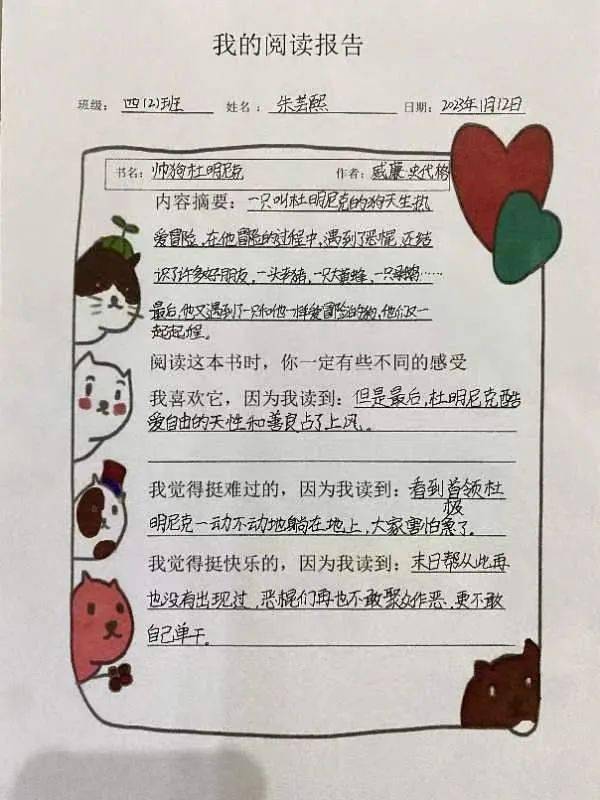 我的阅读报告
班级：四(2)班 姓名：朱芸熙 日期：2023年1月12日
书名：帅狗杜明尼克 作者：威廉·史代格
内容摘要：一只叫杜明尼克的狗天生热
爱冒险，在他冒险的过程中，遇到了恶棍，还结
识了许多好朋友，一头老猪，一只大黄蜂，一只……
最后，他又遇到了一只和他一样爱冒险的狗，他们又一
起起程。
阅读这本书时，你一定有些不同的感受
我喜欢它，因为我读到：但是最后，杜明尼克酷
爱自由的天性和善良占了上风。
我觉得挺难过的，因为我读到：看到首领杜
明尼克一动不动地躺在地上，大家害怕极了。
我觉得挺快乐的，因为我读到：末日帮从此再
也没有出现过，恶棍们再也不敢聚众作恶，更不敢
自己单干。